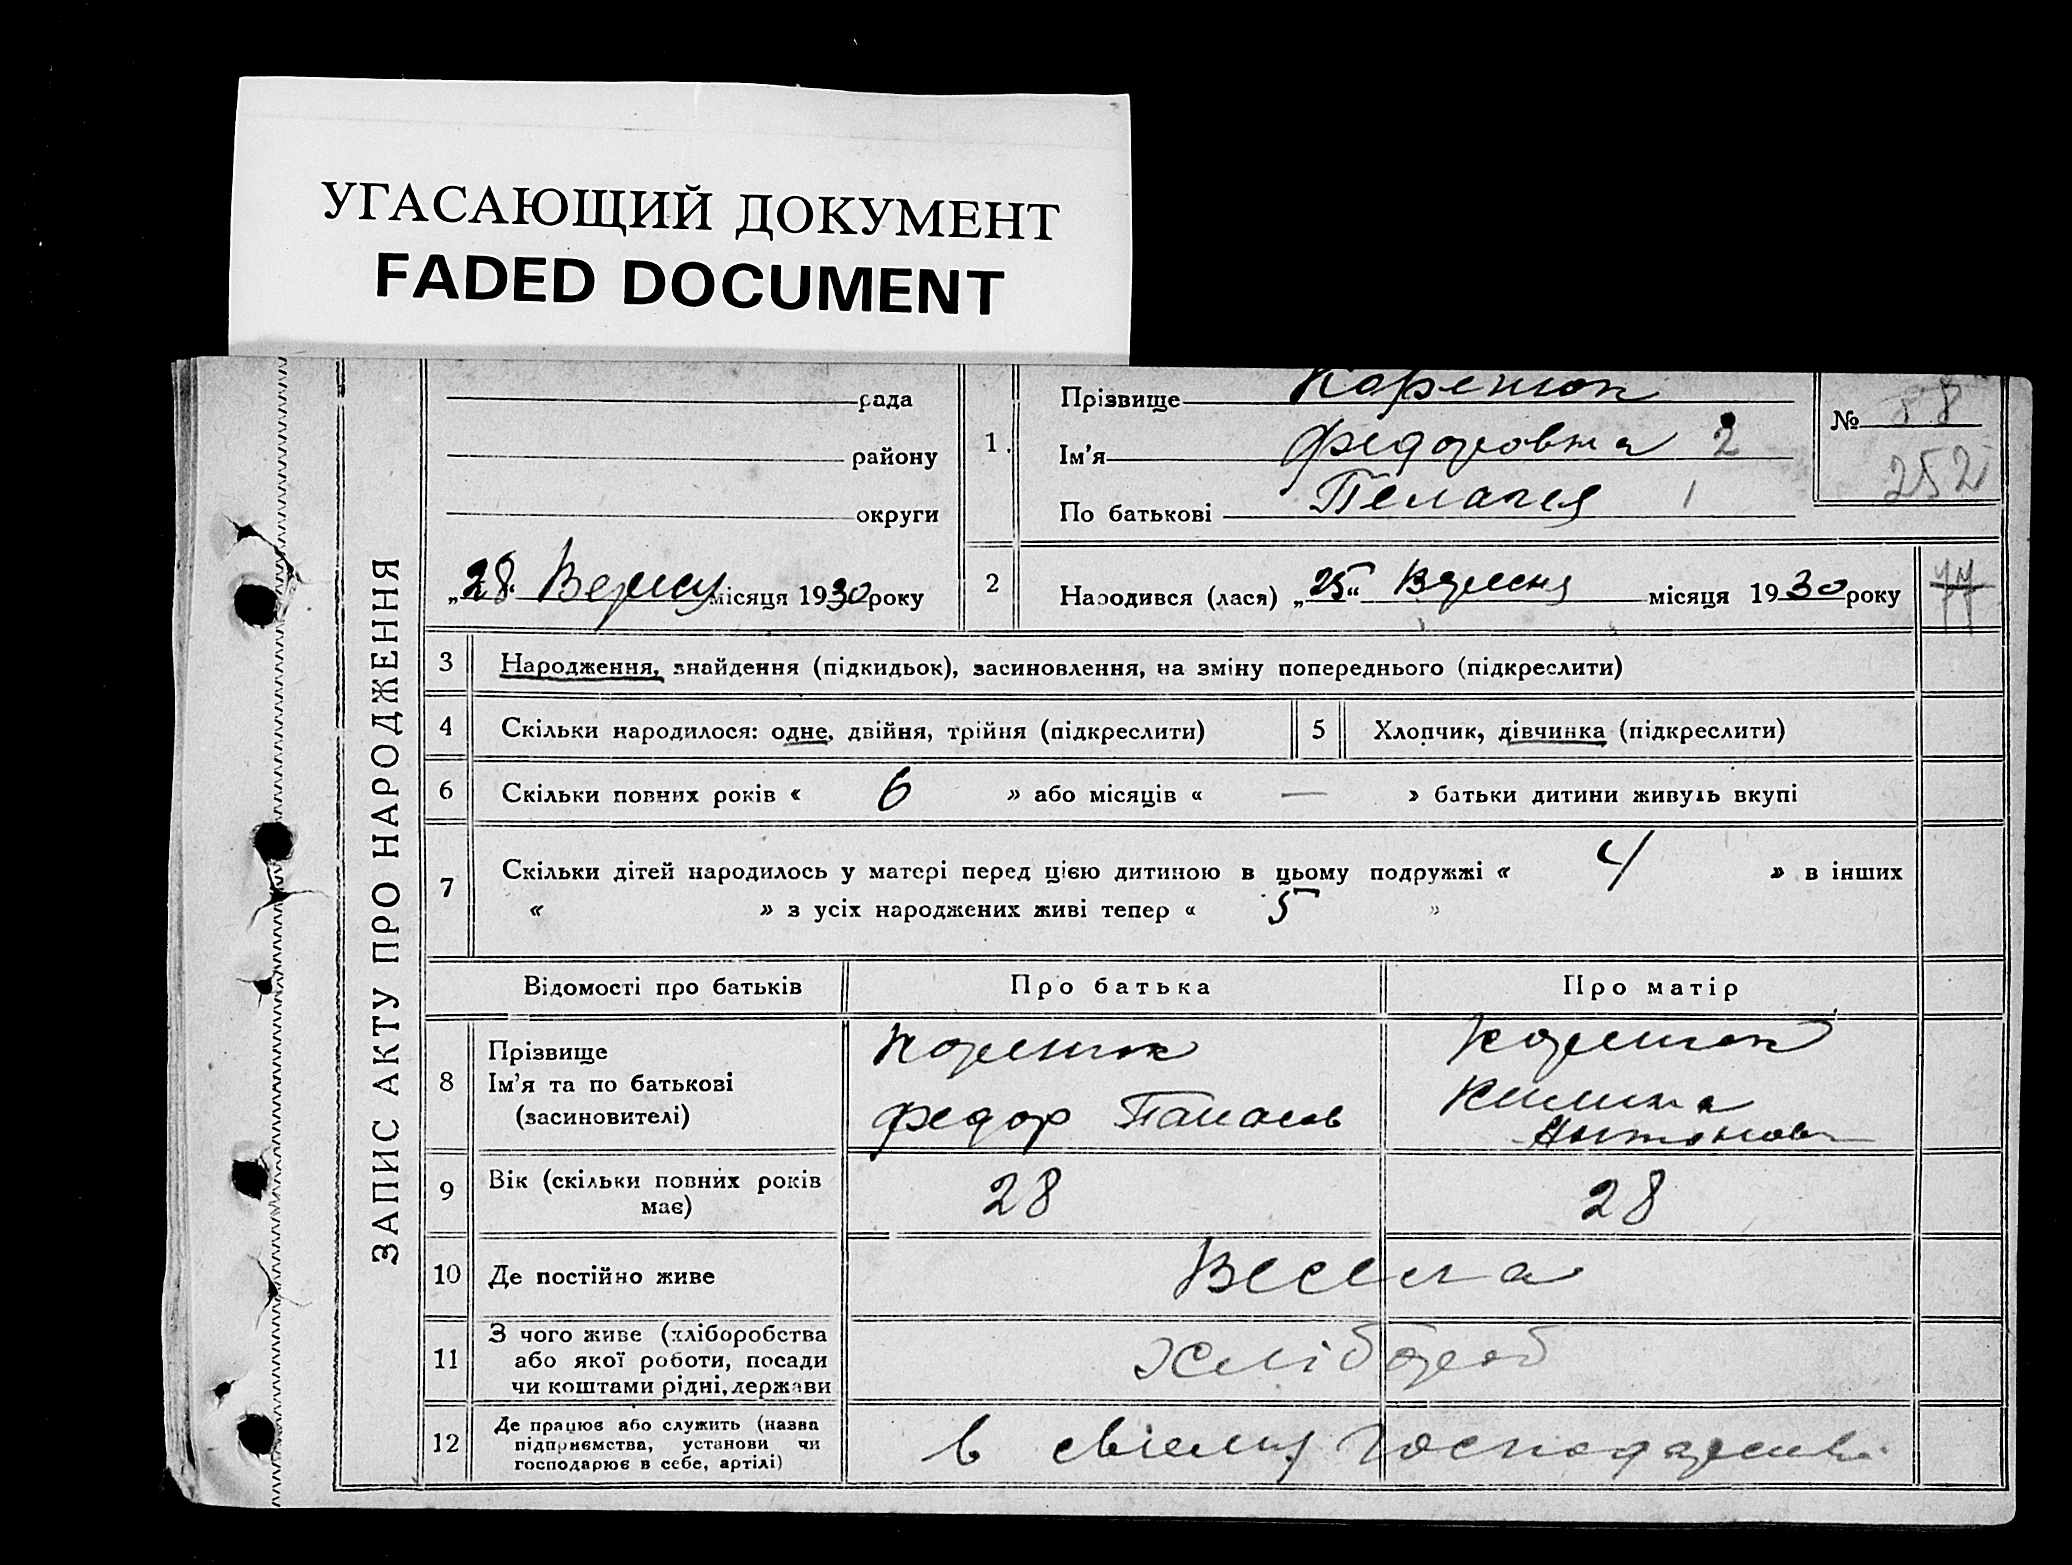 УГАСАЮЩИЙ ДОКУМЕНТ
FADED DOCUMENT
ЗАПИС АКТУ ПРО НАРОДЖЕННЯ
рада
району
округи
„28“ Вересня місяця 1930 року
1. Прізвище Коренюк
Ім'я Федоровна 2
По батькові Пелагея 1
№ 88
252
2 Народився (лася) „25“ Вересня місяця 1930 року
77
3 Народження, знайдення (підкидьок), засиновлення, на зміну попереднього (підкреслити)
4 Скільки народилося: одне, двійня, трійня (підкреслити)
5 Хлопчик, дівчинка (підкреслити)
6 Скільки повних років « 6 » або місяців « — » батьки дитини живуть вкупі
7 Скільки дітей народилось у матері перед цією дитиною в цьому подружжі « 4 » в інших
« » з усіх народжених живі тепер « 5 »
Відомості про батьків Про батька Про матір
8 Прізвище
Ім'я та по батькові
(засиновителі)
Коренюк
Федор Панасов
Коренюк
Килина
Антонов
9 Вік (скільки повних років
має)
28 28
10 Де постійно живе
11 З чого живе (хліборобства
або якої роботи, посади
чи коштами рідні, держави
Хлібороб
12 Де працює або служить (назва
підприємства, установи чи
господарює в себе, артілі)
в своему господарстві